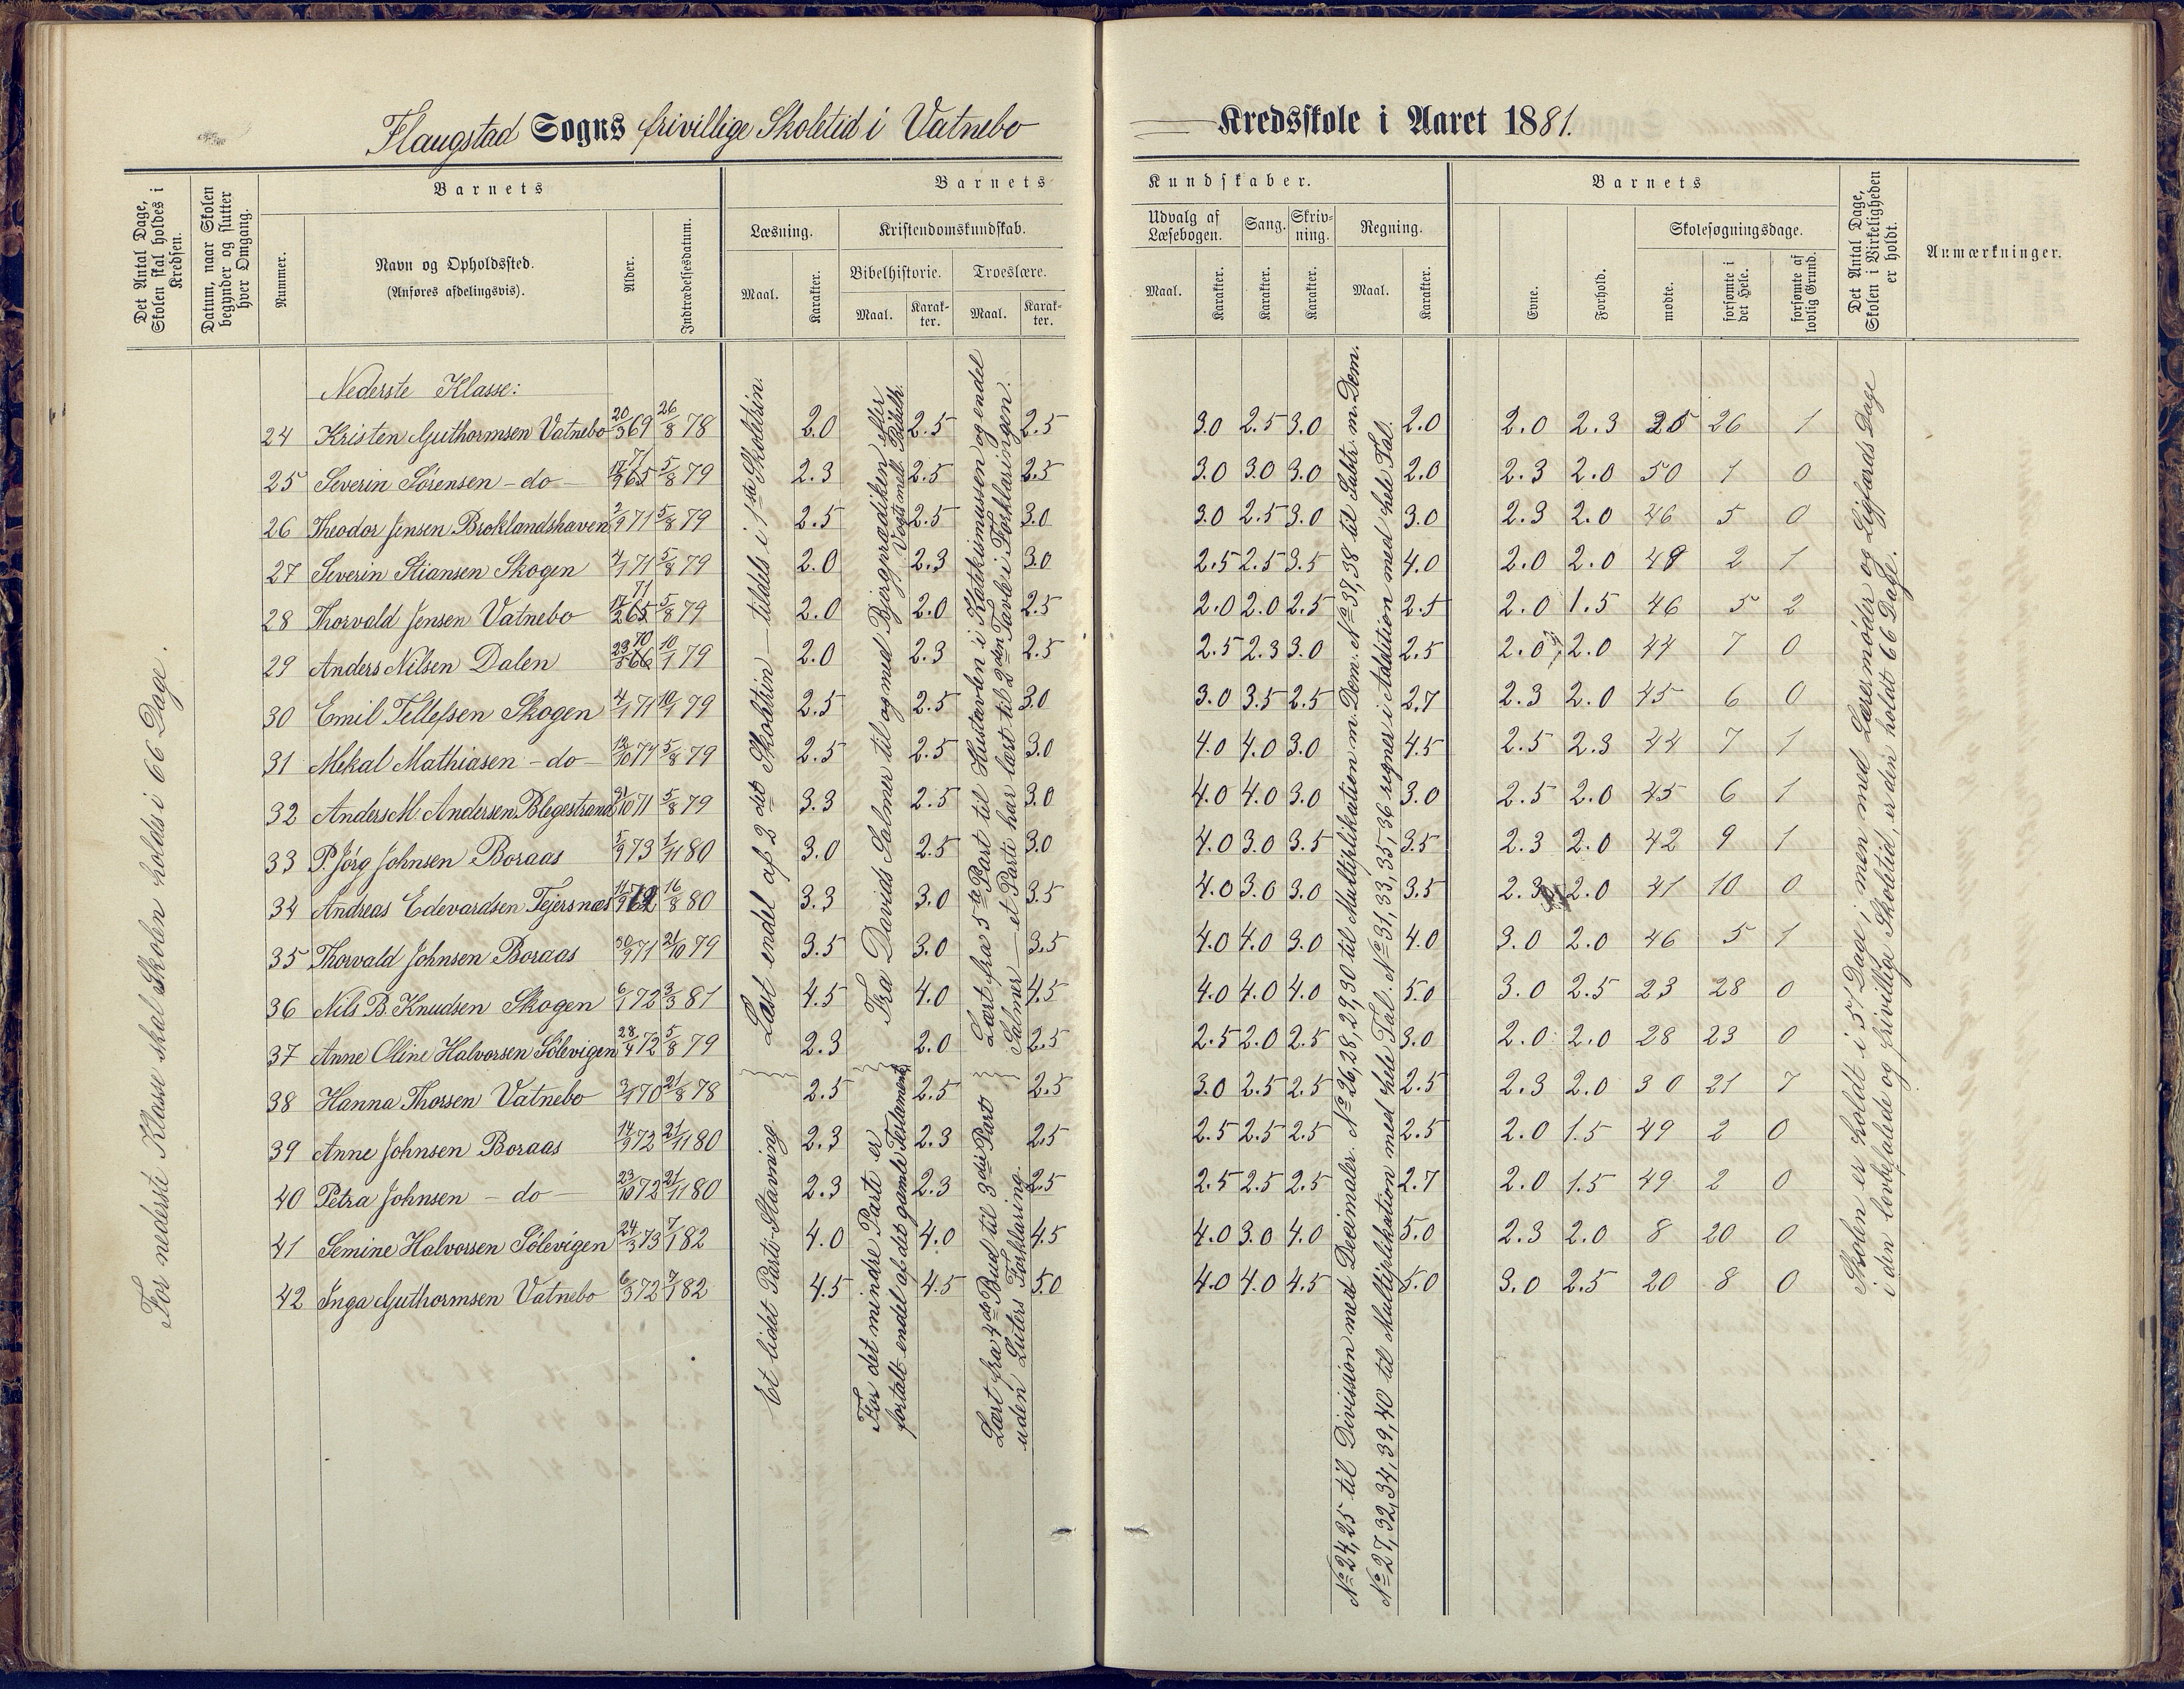 Flaugstad Sogns frivillige Skoletid i Vatnebo Kredsskole i Aaret 1881.
Det Antal Dage, Skolen skal holdes i Kredsen.
Datum, naar Skolen begynder og slutter hver Omgang.
Barnets
Nummer.
Navn og Opholdssted.
(Anføres afdelingsvis).
Alder.
Indtrædelsesdatum.
Barnets Kundskaber.
Læsning.
Maal. Karakter.
Kristendomskundskab.
Bibelhistorie. Troeslære.
Maal. Karakter. Maal. Karakter.
Udvalg af Læsebogen.
Maal. Karakter.
Sang.
Karakter.
Skrivning.
Karakter.
Regning.
Maal. Karakter.
Barnets
Evne. Forhold.
Skolesøgningsdage.
mødte. forsømte i det Hele. forsømte af lovlig Grund.
Det Antal Dage, Skolen i Virkeligheden er holdt.
Anmærkninger.
Nederste Klasse:
24 Kristen Guthormsen Vatnebo 20/3 69 26/8 78 2.0 2.5 2.5 3.0 2.5 3.0 2.0 2.0 2.3 25 26 1
25 Severin Sørensen - do - 71 5/8 79 2.3 2.5 2.5 3.0 3.0 3.0 2.0 2.3 2.0 50 1 0
26 Theodor Jensen Broklandshaven 71 5/8 79 2.5 2.5 3.0 3.0 2.5 3.0 3.0 2.3 2.0 46 5 0
27 Severin Stiansen Skogen 71 5/8 79 2.0 2.3 3.0 2.5 2.5 3.5 4.0 2.0 2.0 48 2 1
28 Thorvald Jensen Vatnebo 71 5/8 79 2.0 2.0 2.5 2.0 2.0 2.5 2.5 2.0 1.5 46 5 2
29 Anders Nilsen Dalen 70 10/1 79 2.0 2.3 2.5 2.5 2.3 3.0 2.5 2.0 2.0 44 7 0
30 Emil Tellefsen Skogen 4/1 71 10/1 79 2.5 2.5 3.0 3.0 3.5 2.5 2.7 2.3 2.0 45 6 0
31 Mekal Mathiasen - do - 71 5/8 79 2.5 2.5 3.0 4.0 4.0 3.0 4.5 2.5 2.3 44 7 1
32 Anders M. Andersen Blegestrand 71 5/8 79 3.3 2.5 3.0 4.0 4.0 3.0 3.0 2.5 2.0 45 6 1
33 P. Jørg Johnsen Boraas 73 1/11 80 3.0 2.5 3.0 4.0 3.0 3.5 3.5 2.3 2.0 42 9 1
34 Andreas Edevardsen Tejersnæs 16/8 80 3.3 3.0 3.5 4.0 3.0 3.0 3.5 2.3 2.0 41 10 0
35 Thorvald Johnsen Boraas 71 21/10 79 3.5 3.0 3.5 4.0 4.0 3.0 4.0 3.0 2.0 46 5 1
36 Nils B. Knudsen Skogen 6/1 72 3/3 81 4.5 4.0 4.5 4.0 4.0 4.0 5.0 3.0 2.5 23 28 0
37 Anne Oline Halvorsen Sølevigen 28/4 72 5/8 79 2.3 2.0 2.5 2.5 2.0 2.5 3.0 2.0 2.0 28 23 0
38 Hanna Thorsen Vatnebo 70 21/8 78 2.5 2.5 2.5 3.0 2.5 2.5 2.5 2.3 2.0 30 21 7
39 Anne Johnsen Boraas 72 21/11 80 2.3 2.3 2.5 2.5 2.5 2.5 2.5 2.0 1.5 49 2 0
40 Petra Johnsen - do - 23/10 72 21/11 80 2.3 2.3 2.5 2.5 2.5 2.5 2.7 2.0 1.5 49 2 0
41 Semine Halvorsen Sølevigen 24/3 73 7/1 82 4.0 4.0 4.5 4.0 3.0 4.0 5.0 2.3 2.0 8 20 0
42 Inga Guthormsen Vatnebo 6/3 72 7/1 82 4.5 4.5 5.0 4.0 4.0 4.5 5.0 3.0 2.5 20 8 0
For nederste Klasse skal Skolen holdes i 66 Dage.
Læst endel af 2det Skoletrin - tildels i 1ste Skoletrin.
Et lidet Parti - Stavning.
Fra Davids Salmer til og med Bjergprædiken efter Vogts mell. Bibelh.
For det mindre Parti er
fortalt endel af det gamle Testamente
Lært fra 5te Part til Hustavlen i Katekismussen og endel
Salmer - et Parti har lært til 2den Tavle i Forklaringen.
Lært fra 4de Bud til 3die Part
uden Luters Forklaring.
No 24, 25 til Division med Decimaler. No 26, 28, 29, 30 til Multiplikation m. Dem. No 37, 38 til Subtr. m. Dem.
No 27, 32, 34, 39, 40 til Multiplikation med hele Tal. No 31, 33, 35, 36 regner i Addition med hele Tal.
Skolen er holdt i 51 Dage; men med Læsermøder og Ligfærds Dage
i den lovbefalede og frivillige Skoletid, er den holdt 66 Dage.